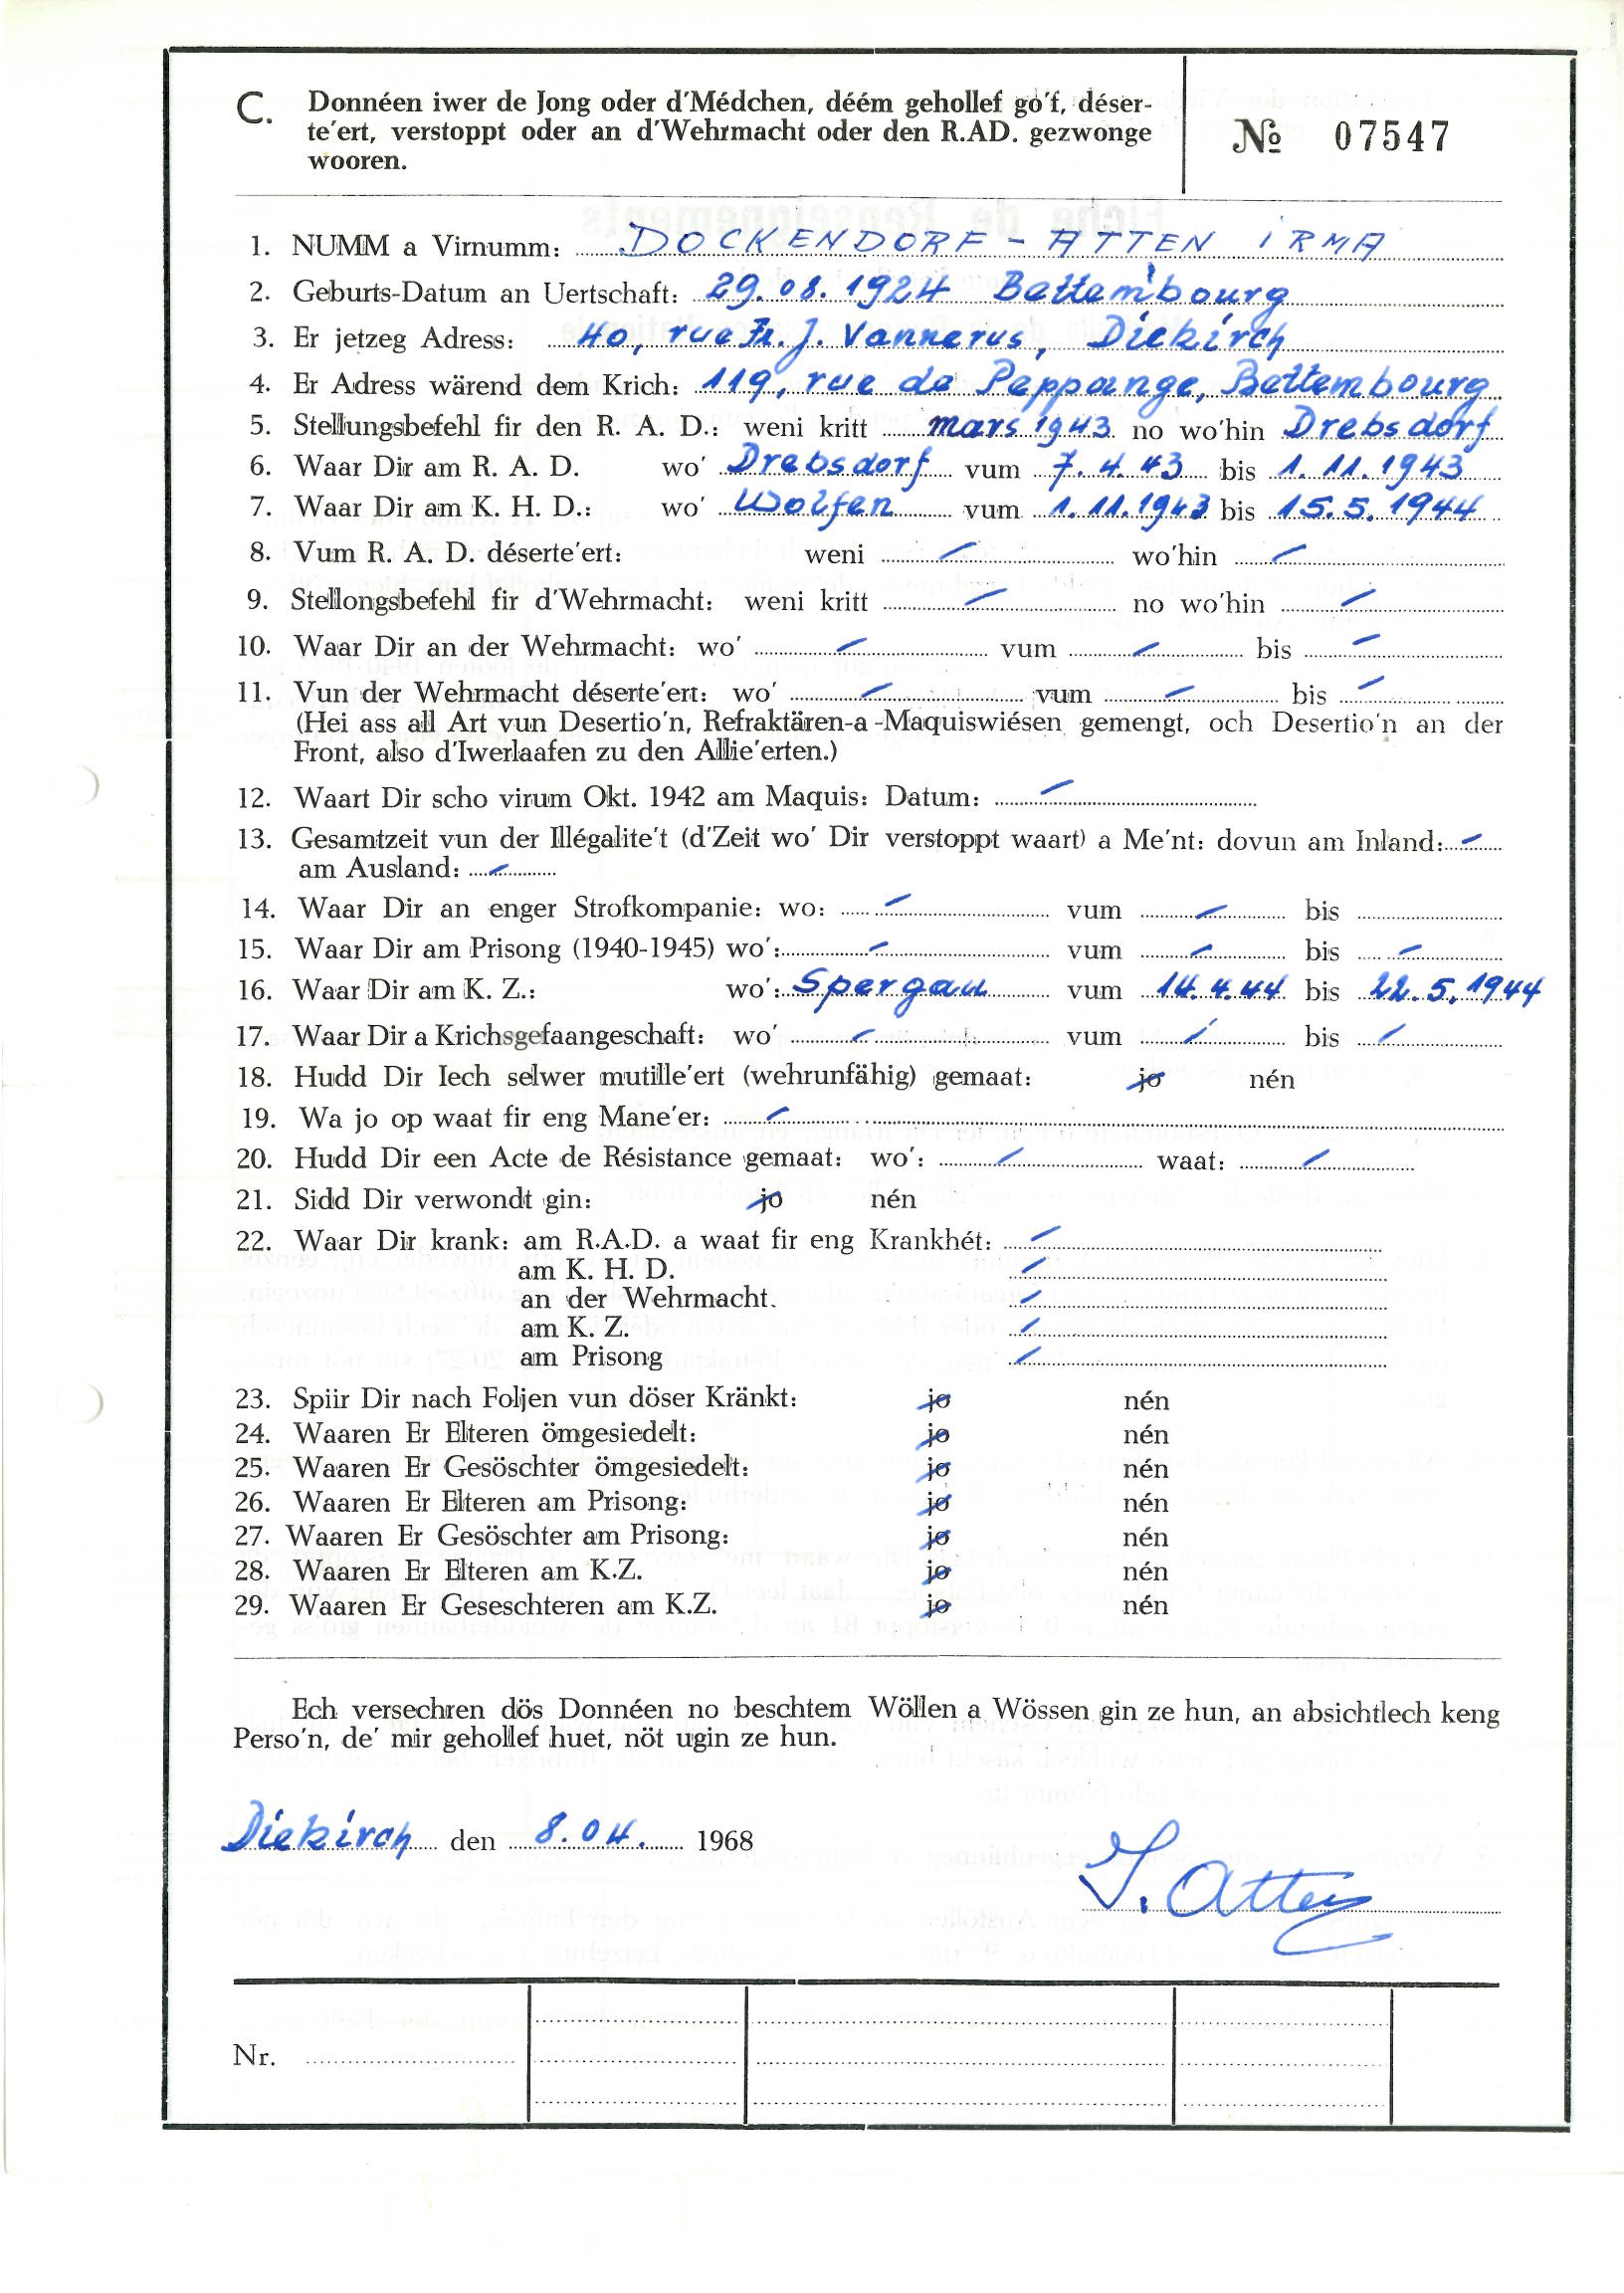 C. Donnéen iwer de Jong oder d'Médchen, déém gehollef go'f, déser-
te'ert, verstoppt oder an d'Wehrmacht oder den R.AD. gezwonge
wooren.
№ 07547
1. NUMM a Virnumm: DOCKENDORF - ATTEN IRMA
2. Geburts-Datum an Uertschaft: 29.08.1924 Bettembourg
3. Er jetzeg Adress: 40, rue Fr. J. Vannerus, Diekirch
4. Er Adress wärend dem Krich: 119, rue de Peppange, Bettembourg
5. Stellungsbefehl fir den R. A. D.: weni kritt mars 1943 no wo'hin Drebsdorf
6. Waar Dir am R. A. D. wo' Drebsdorf vum 7.4.43 bis 1.11.1943
7. Waar Dir am K. H. D.: wo' Wolfen vum 1.11.1943 bis 15.5.1944
8. Vum R. A. D. déserte'ert: weni – wo'hin –
9. Stellongsbefehl fir d'Wehrmacht: weni kritt – no wo'hin –
10. Waar Dir an der Wehrmacht: wo' – vum – bis –
11. Vun der Wehrmacht déserte'ert: wo' – vum – bis –
(Hei ass all Art vun Desertio'n, Refraktären-a-Maquiswiésen gemengt, och Desertio'n an der
Front, also d'Iwerlaafen zu den Allie'erten.)
12. Waart Dir scho virum Okt. 1942 am Maquis: Datum: –
13. Gesamtzeit vun der Illégalite't (d'Zeit wo' Dir verstoppt waart) a Me'nt: dovun am Inland: –
am Ausland: –
14. Waar Dir an enger Strofkompanie: wo: – vum – bis
15. Waar Dir am Prisong (1940-1945) wo': – vum – bis –
16. Waar Dir am K. Z.: wo': Spergau vum 14.4.44 bis 22.5.1944
17. Waar Dir a Krichsgefaangeschaft: wo' – vum – bis –
18. Hudd Dir Iech selwer mutille'ert (wehrunfähig) gemaat: jo nén
19. Wa jo op waat fir eng Mane'er: –
20. Hudd Dir een Acte de Résistance gemaat: wo': – waat: –
21. Sidd Dir verwondt gin: jo nén
22. Waar Dir krank: am R.A.D. a waat fir eng Krankhét: –
am K. H. D. –
an der Wehrmacht. –
am K. Z. –
am Prisong –
23. Spiir Dir nach Foljen vun döser Kränkt: jo nén
24. Waaren Er Elteren ömgesiedelt: jo nén
25. Waaren Er Gesöschter ömgesiedelt: jo nén
26. Waaren Er Elteren am Prisong: jo nén
27. Waaren Er Gesöschter am Prisong: jo nén
28. Waaren Er Elteren am K.Z. jo nén
29. Waaren Er Geseschteren am K.Z. jo nén
Ech versechren dös Donnéen no beschtem Wöllen a Wössen gin ze hun, an absichtlech keng
Perso'n, de' mir gehollef huet, nöt ugin ze hun.
Diekirch den 8.04. 1968
I. Atten
Nr.